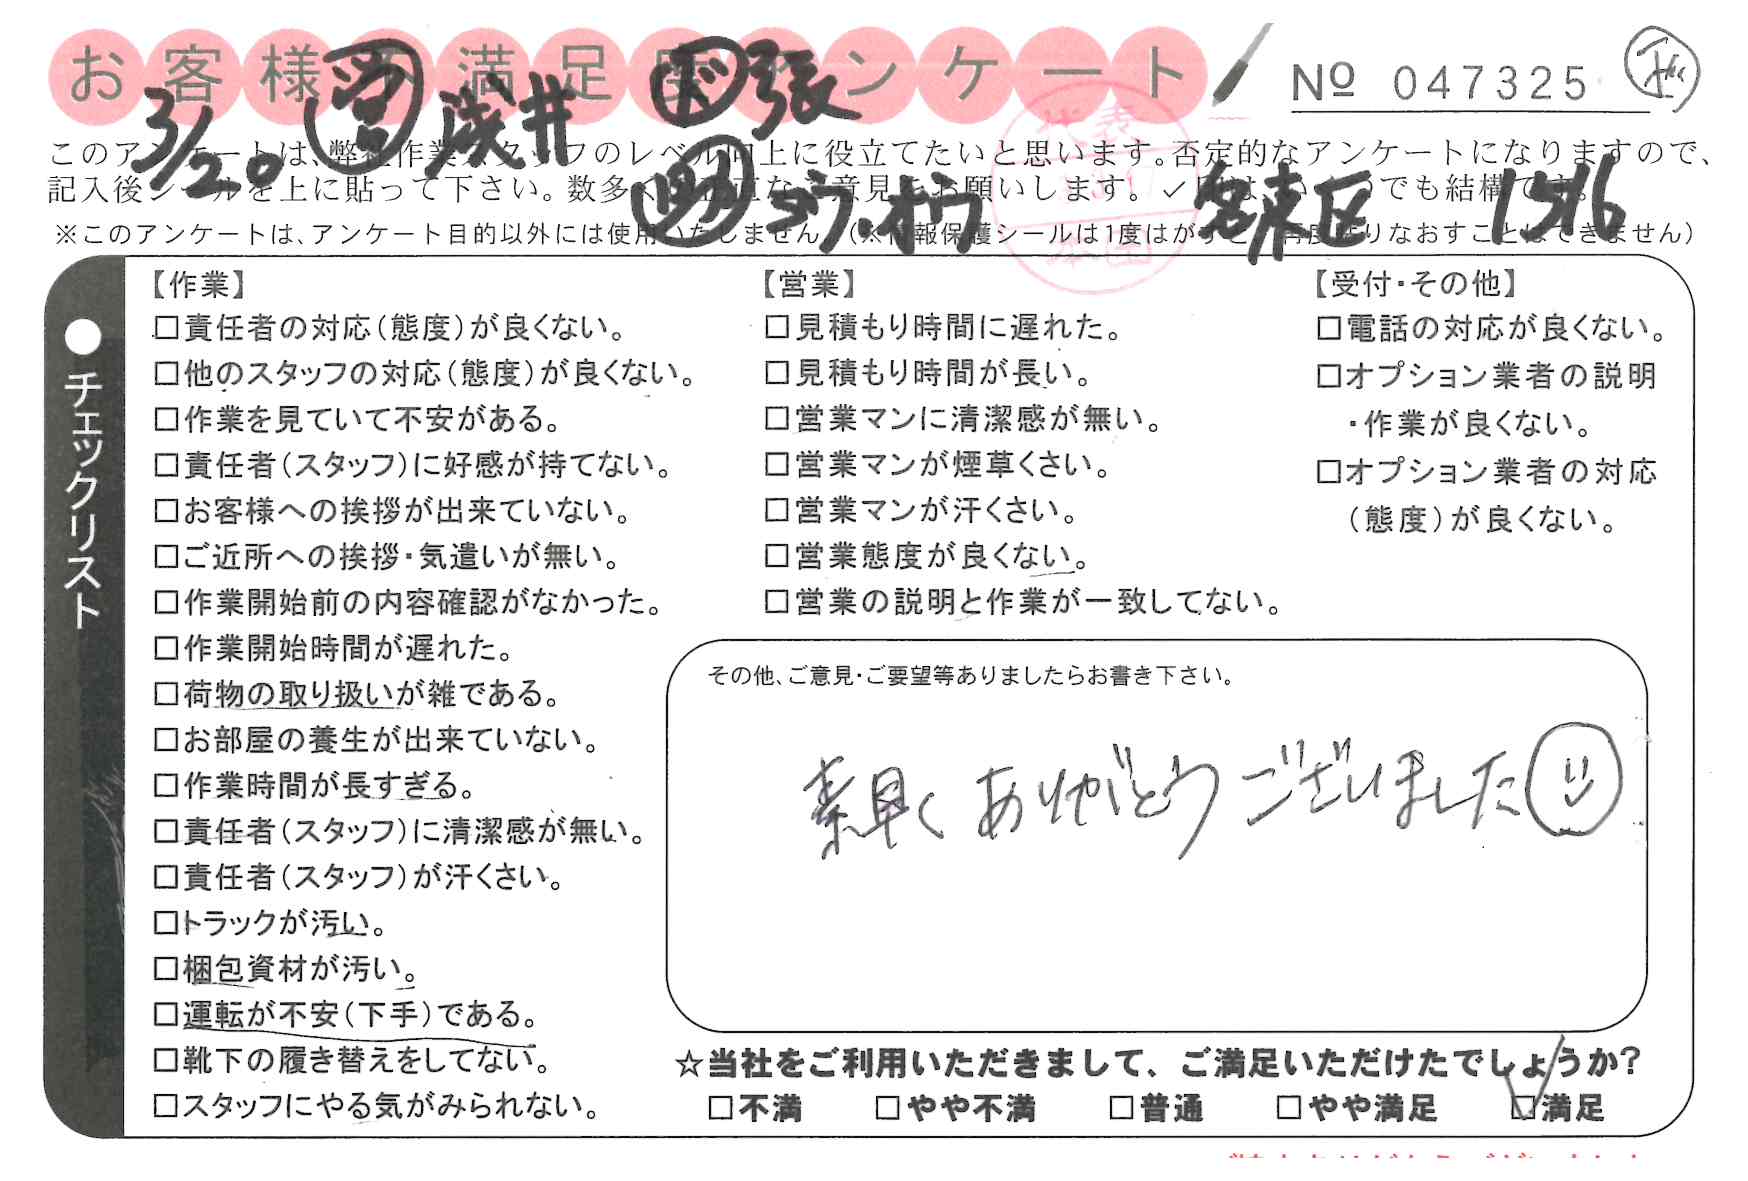 お客様 満足度アンケート
№ 047325
3/20 営 浅井 ド 張
このアンケートは、弊社作業スタッフのレベル向上に役立てたいと思います。否定的なアンケートになりますので、
記入後シールを上に貼って下さい。数多くの正直なご意見をお願いします。✓印は、いくつでも結構です。
宮東区 1516
※このアンケートは、アンケート目的以外には使用いたしません。(※情報保護シールは1度はがすと、再度はりなおすことはできません)
代表
本田
●チェックリスト
【作業】
□責任者の対応(態度)が良くない。
□他のスタッフの対応(態度)が良くない。
□作業を見ていて不安がある。
□責任者(スタッフ)に好感が持てない。
□お客様への挨拶が出来ていない。
□ご近所への挨拶・気遣いが無い。
□作業開始前の内容確認がなかった。
□作業開始時間が遅れた。
□荷物の取り扱いが雑である。
□お部屋の養生が出来ていない。
□作業時間が長すぎる。
□責任者(スタッフ)に清潔感が無い。
□責任者(スタッフ)が汗くさい。
□トラックが汚い。
□梱包資材が汚い。
□運転が不安(下手)である。
□靴下の履き替えをしてない。
□スタッフにやる気がみられない。
【営業】
□見積もり時間に遅れた。
□見積もり時間が長い。
□営業マンに清潔感が無い。
□営業マンが煙草くさい。
□営業マンが汗くさい。
□営業態度が良くない。
□営業の説明と作業が一致してない。
【受付・その他】
□電話の対応が良くない。
□オプション業者の説明
・作業が良くない。
□オプション業者の対応
(態度)が良くない。
その他、ご意見・ご要望等ありましたらお書き下さい。
素早く ありがとう ございました
☆当社をご利用いただきまして、ご満足いただけたでしょうか?
□不満 □やや不満 □普通 □やや満足 ☑満足